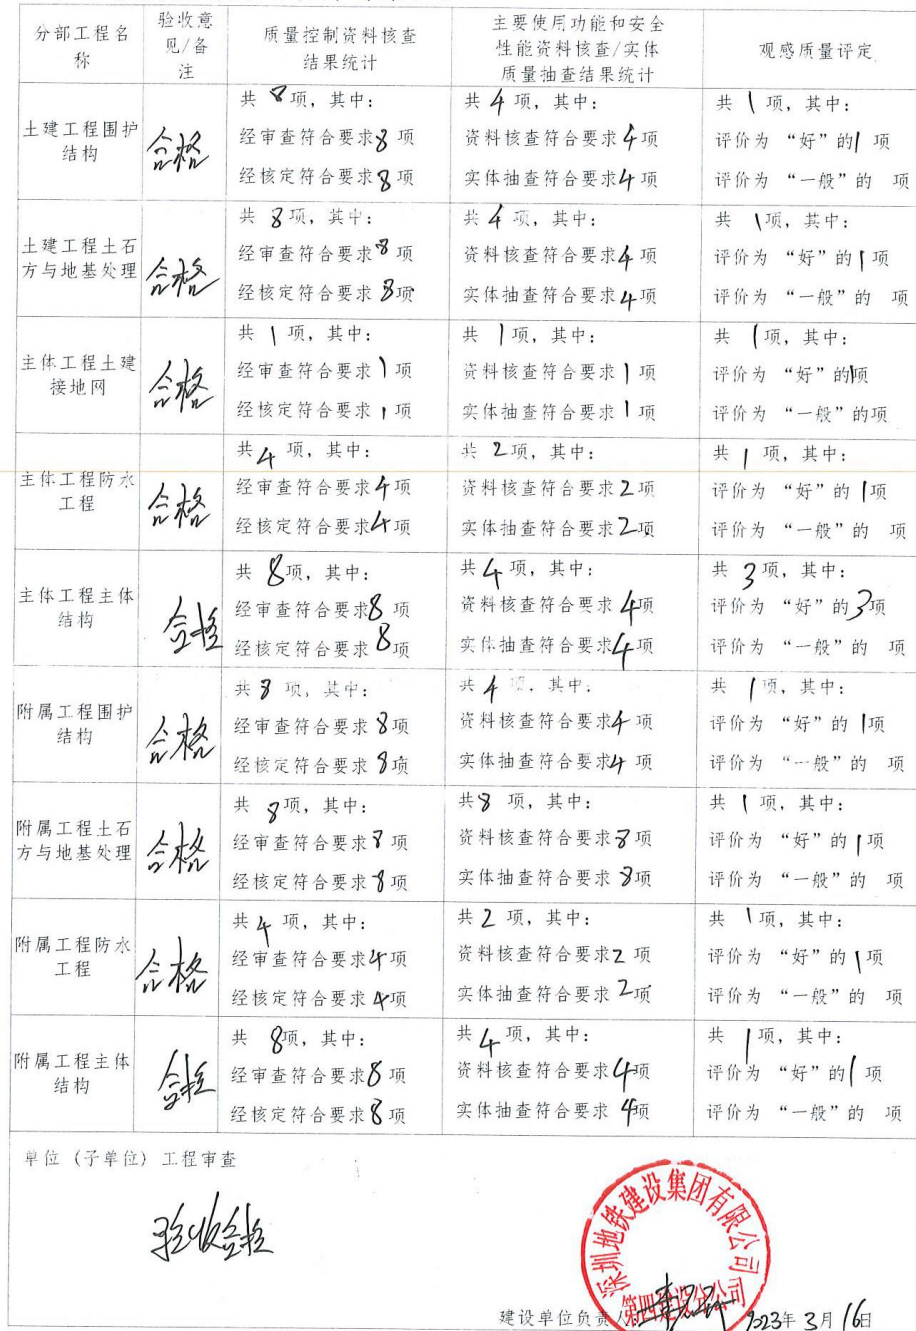 分部工程名
称
验收意
见/备
注
质量控制资料核查
结果统计
主要使用功能和安全
性能资料核查/实体
质量抽查结果统计
观感质量评定
土建工程围护
结构
合格
共 8项，其中：
经审查符合要求8 项
经核定符合要求8 项
共 4 项，其中：
资料核查符合要求4项
实体抽查符合要求4项
共 1 项，其中：
评价为 “好”的1 项
评价为 “一般”的 项
土建工程土石
方与地基处理
合格
共 8项，其中：
经审查符合要求8 项
经核定符合要求 8项
共 4 项，其中：
资料核查符合要求4项
实体抽查符合要求4项
共 1项，其中：
评价为 “好”的1项
评价为 “一般”的 项
主体工程土建
接地网
合格
共 1 项，其中：
经审查符合要求1 项
经核定符合要求 1 项
共 1项，其中：
资料核查符合要求1 项
实体抽查符合要求1 项
共 1项，其中：
评价为 “好”的1项
评价为 “一般”的项
主体工程防水
工程
合格
共 4 项，其中：
经审查符合要求4项
经核定符合要求4项
共 2项，其中：
资料核查符合要求2项
实体抽查符合要求2项
共 1 项，其中：
评价为 “好”的 1项
评价为 “一般”的 项
主体工程主体
结构
合格
共 8项，其中：
经审查符合要求8 项
经核定符合要求 8项
共 4 项，其中：
资料核查符合要求 4项
实体抽查符合要求4项
共 3项，其中：
评价为 “好”的3项
评价为 “一般”的 项
附属工程围护
结构
合格
共 8 项，其中：
经审查符合要求 8项
经核定符合要求 8项
共 4 项，其中：
资料核查符合要求4 项
实体抽查符合要求4 项
共 1项，其中：
评价为 “好”的 1项
评价为 “一般”的 项
附属工程土石
方与地基处理
合格
共 8项，其中：
经审查符合要求8 项
经核定符合要求 8项
共8 项，其中：
资料核查符合要求8项
实体抽查符合要求 8项
共 1 项，其中：
评价为 “好”的 1项
评价为 “一般”的 项
附属工程防水
工程
合格
共 4 项，其中：
经审查符合要求4项
经核定符合要求 4项
共 2 项，其中：
资料核查符合要求2 项
实体抽查符合要求 2项
共 1项，其中：
评价为 “好”的1 项
评价为 “一般”的 项
附属工程主体
结构
合格
共 8项，其中：
经审查符合要求8 项
经核定符合要求8 项
共 4 项，其中：
资料核查符合要求4项
实体抽查符合要求 4项
共 1项，其中：
评价为 “好”的1 项
评价为 “一般”的 项
单位（子单位）工程审查
验收合格
深圳地铁建设集团有限公司
第四建设分公司
建设单位负责人：
2023年 3月 16日